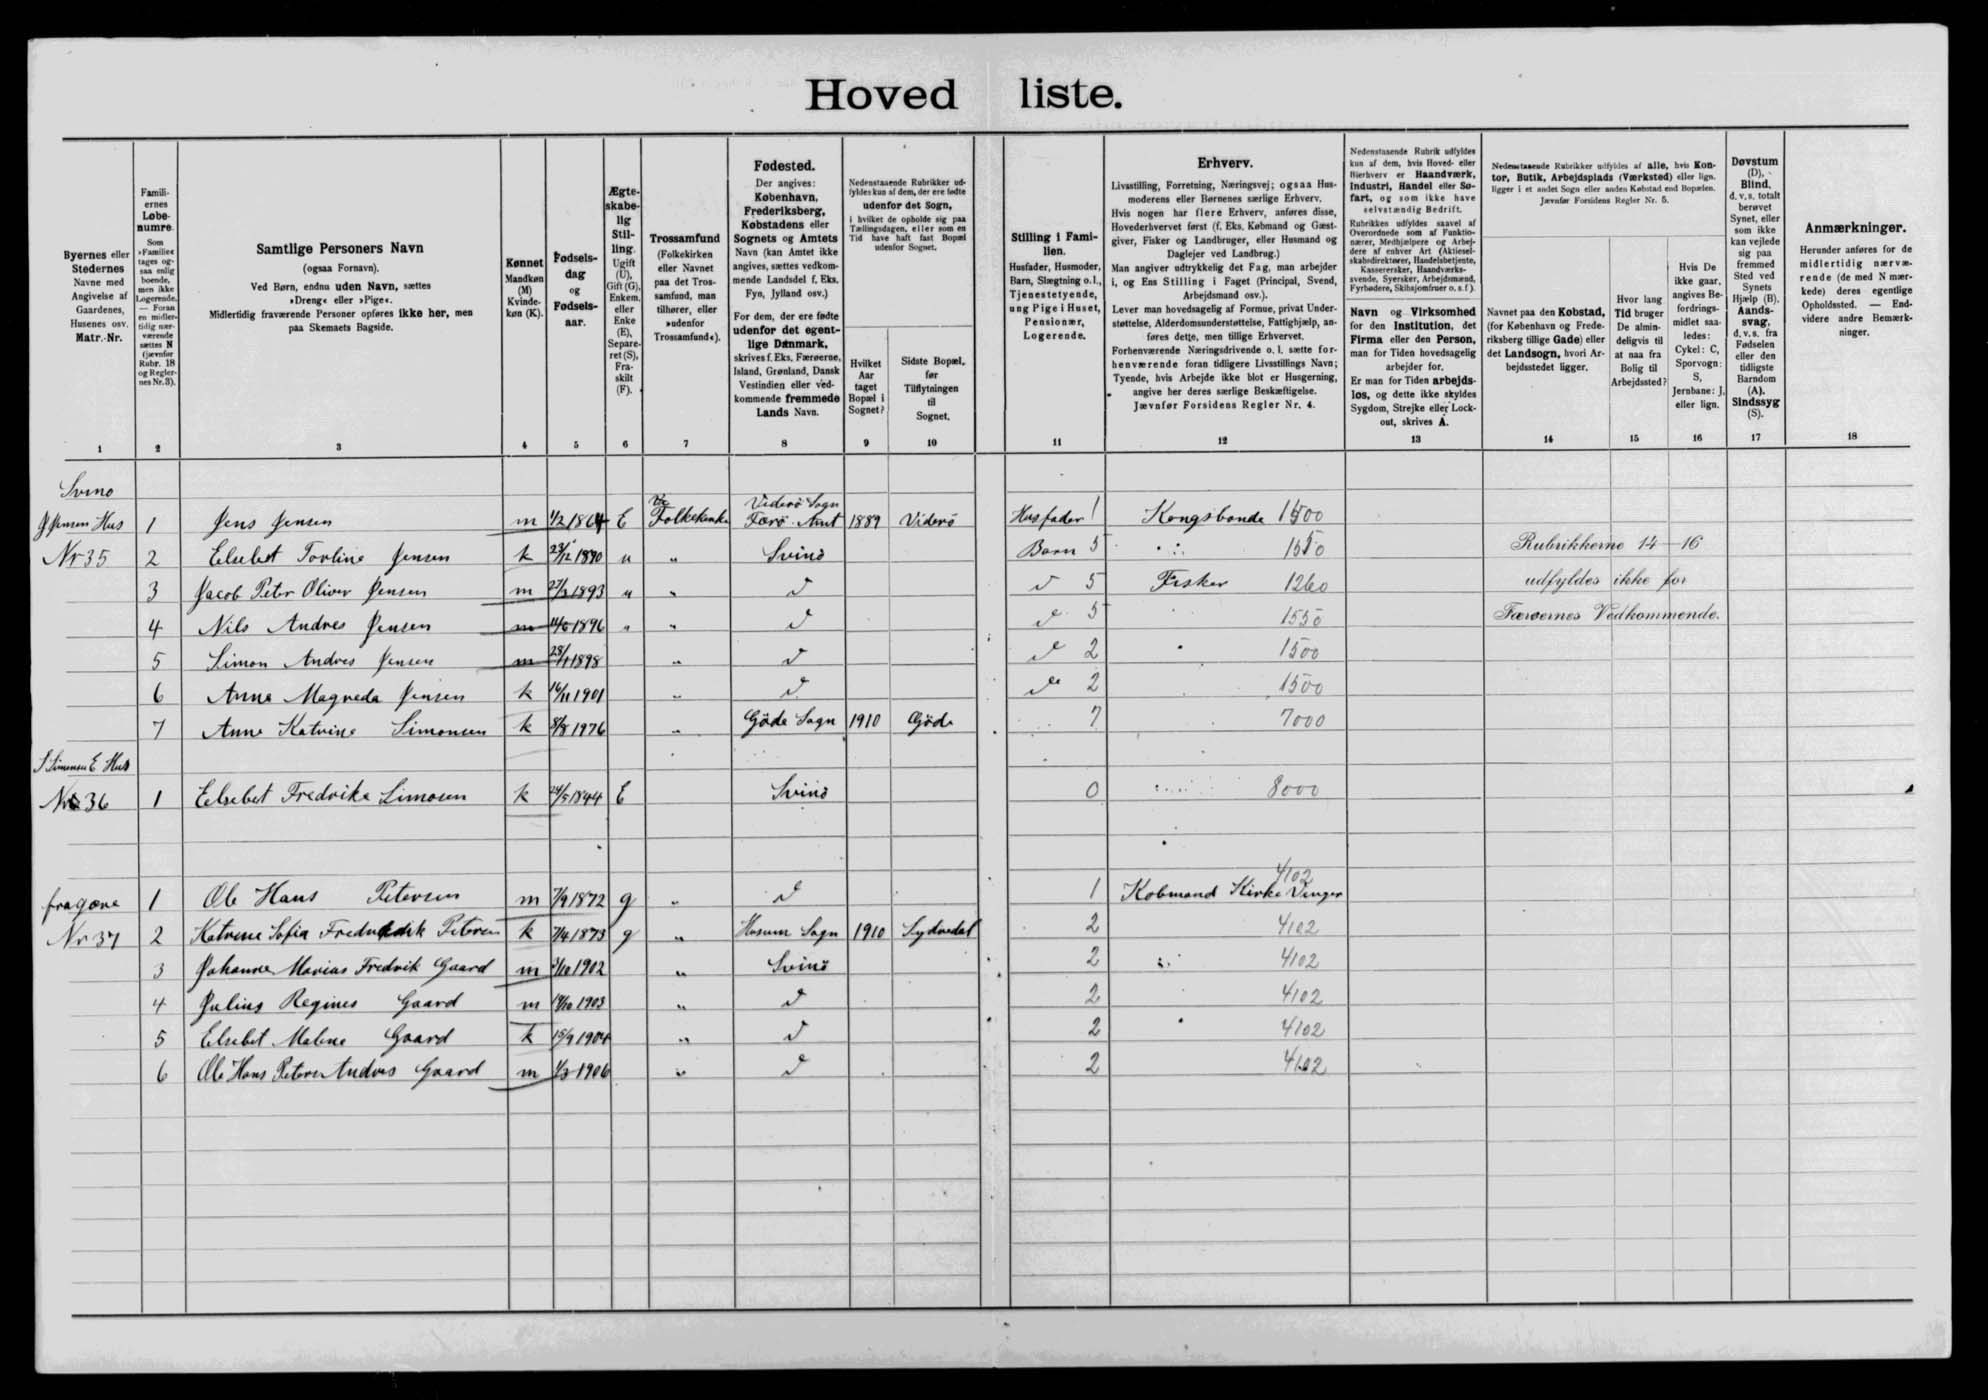 Hoved liste.
Byernes eller
Stedernes
Navne med
Angivelse af
Gaardenes,
Husenes osv.
Matr.-Nr.
1
Famili-
ernes
Løbe-
numre.
Som
»Familie«
tages og-
saa enlig
boende,
men ikke
Logerende.
— Foran
en midler-
tidig nær-
værende
sættes N
(jævnfør
Rubr. 18
og Regler-
nes Nr. 3).
2
Samtlige Personers Navn
(ogsaa Fornavn).
Ved Børn, endnu uden Navn, sættes
»Dreng« eller »Pige«.
Midlertidig fraværende Personer opføres ikke her, men
paa Skemaets Bagside.
3
Kønnet
Mandkøn
(M)
Kvinde-
køn (K).
4
Fødsels-
dag
og
Fødsels-
aar.
5
Ægte-
skabe-
lig
Stil-
ling.
Ugift
(U),
Gift (G),
Enkem.
eller
Enke
(E),
Separe-
ret (S),
Fra-
skilt
(F).
6
Trossamfund
(Folkekirken
eller Navnet
paa det Tros-
samfund, man
tilhører, eller
»udenfor
Trossamfund«).
7
Fødested.
Der angives:
København,
Frederiksberg,
Købstadens eller
Sognets og Amtets
Navn (kan Amtet ikke
angives, sættes vedkom-
mende Landsdel f. Eks.
Fyn, Jylland osv.)
For dem, der ere fødte
udenfor det egent-
lige Danmark,
skrives f. Eks. Færøerne,
Island, Grønland, Dansk
Vestindien eller ved-
kommende fremmede
Lands Navn.
8
Nedenstaaende Rubrikker ud-
fyldes kun af dem, der ere fødte
udenfor det Sogn,
i hvilket de opholde sig paa
Tællingsdagen, eller som en
Tid have haft fast Bopæl
udenfor Sognet.
Hvilket
Aar
taget
Bopæl i
Sognet?
9
Sidste Bopæl,
før
Tilflytningen
til
Sognet.
10
Stilling i Fami-
lien.
Husfader, Husmoder,
Barn, Slægtning o.l.,
Tjenestetyende,
ung Pige i Huset,
Pensionær,
Logerende.
11
Erhverv.
Livsstilling, Forretning, Næringsvej; ogsaa Hus-
moderens eller Børnenes særlige Erhverv.
Hvis nogen har flere Erhverv, anføres disse,
Hovederhvervet først (f. Eks. Købmand og Gæst-
giver, Fisker og Landbruger, eller Husmand og
Daglejer ved Landbrug.)
Man angiver udtrykkelig det Fag, man arbejder
i, og Ens Stilling i Faget (Principal, Svend,
Arbejdsmand osv.).
Lever man hovedsagelig af Formue, privat Under-
støttelse, Alderdomsunderstøttelse, Fattighjælp, an-
føres dette, men tillige Erhvervet.
Forhenværende Næringsdrivende o. l. sætte for-
henværende foran tidligere Livsstillings Navn;
Tyende, hvis Arbejde ikke blot er Husgerning,
angive her deres særlige Beskæftigelse.
Jævnfør Forsidens Regler Nr. 4.
12
Nedenstaaende Rubrik udfyldes
kun af dem, hvis Hoved- eller
Bierhverv er Haandværk,
Industri, Handel eller Sø-
fart, og som ikke have
selvstændig Bedrift.
Rubrikkes udfyldes saavel af
Overordnede som af Funktio-
nærer, Medhjælpere og Arbej-
dere af enhver Art (Aktiesel-
skabsdirektører, Handelsbetjente,
Kasserersker, Haandværks-
svende, Syersker, Arbejdsmænd,
Fyrbødere, Skibsjomfruer o. s. f.).
Navn og Virksomhed
for den Institution, det
Firma eller den Person,
man for Tiden hovedsagelig
arbejder for.
Er man for Tiden arbejds-
løs, og dette ikke skyldes
Sygdom, Strejke eller Lock-
out, skrives A.
13
Nedenstaaende Rubrikker udfyldes af alle, hvis Kon-
tor, Butik, Arbejdsplads (Værksted) eller lign.
ligger i et andet Sogn eller anden Købstad end Bopælen.
Jævnfør Forsidens Regler Nr. 5.
Navnet paa den Købstad,
(for København og Frede-
riksberg tillige Gade) eller
det Landsogn, hvori Ar-
bejdsstedet ligger.
14
Hvor lang
Tid bruger
De almin-
deligvis til
at naa fra
Bolig til
Arbejdssted?
15
Hvis De
ikke gaar,
angives Be-
fordrings-
midlet saa-
ledes:
Cykel: C,
Sporvogn:
S,
Jernbane: J,
eller lign.
16
Døvstum
(D),
Blind,
d. v. s. totalt
berøvet
Synet, eller
som ikke
kan vejlede
sig paa
fremmed
Sted ved
Synets
Hjælp (B).
Aands-
svag,
d. v. s. fra
Fødselen
eller den
tidligste
Barndom
(A).
Sindssyg
(S).
17
Anmærkninger.
Herunder anføres for de
midlertidig nærvæ-
rende (de med N mær-
kede) deres egentlige
Opholdssted. — End-
videre andre Bemærk-
ninger.
18
Svinø
Viderø Sogn
J Jensen Hus 1 Jens Jensen m 1/2 1864 E Folkekirke Færø Amt 1889 Viderø Husfader 1 Kongsbonde 1500
Nr 35 2 Elsebet Torline Jensen k 1890 u „ Svinø Barn 5 1550 Rubrikkerne 14—16
3 Jacob Peter Oliver Jensen m 1893 u „ d d 5 Fisker 1260 udfyldes ikke for
4 Nils Andres Jensen m 1896 „ „ d d 5 1550 Færøernes Vedkommende.
5 Simon Andres Jensen m 1898 „ d d 2 1500
6 Anna Magneda Jensen k 1901 „ d d 2 1500
7 Anna Katrine Simonsen k 8/8 1976 „ Gøde Sogn 1910 Gøde 7 7000
S Simonsen E Hus
Nr 36 1 Elsebet Fredrika Simosen k 24/5 1844 E Svinø 0 8000
4102
fragøre 1 Ole Hans Petersen m 7/9 1872 g „ d 1 Kobmand Kirke Vinger
Nr 37 2 Katrine Sofia Petersen k 7/4 1873 g „ Husum Sogn 1910 Sydredal 2 4102
3 Johannes Marius Fredrik Gaard m 1902 „ Svinø 2 4102
4 Julius Regines Gaard m 1903 „ d 2 4102
5 Elsebet Malene Gaard k 15/9 1904 „ d 2 4102
6 Ole Hans Peter Andres Gaard m 1/3 1906 „ d 2 4102